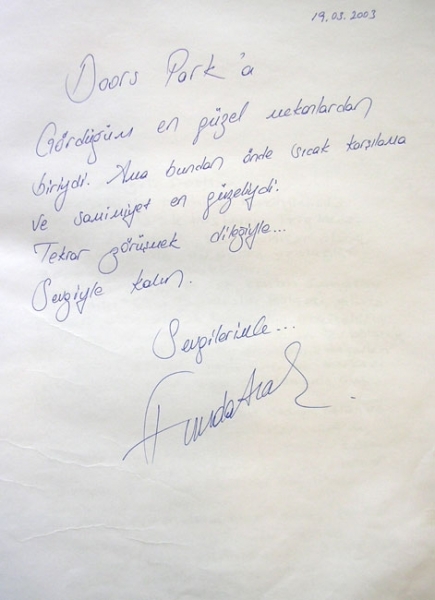 19.03.2003
Doors Park'a
Gördüğüm en güzel mekanlardan
biriydi. Ama bundan önde sıcak karşılama
ve samimiyet en güzeliydi.
Tekrar görüşmek dileğiyle...
Sevgiyle kalın.
Sevgilerimle...
Funda Arar